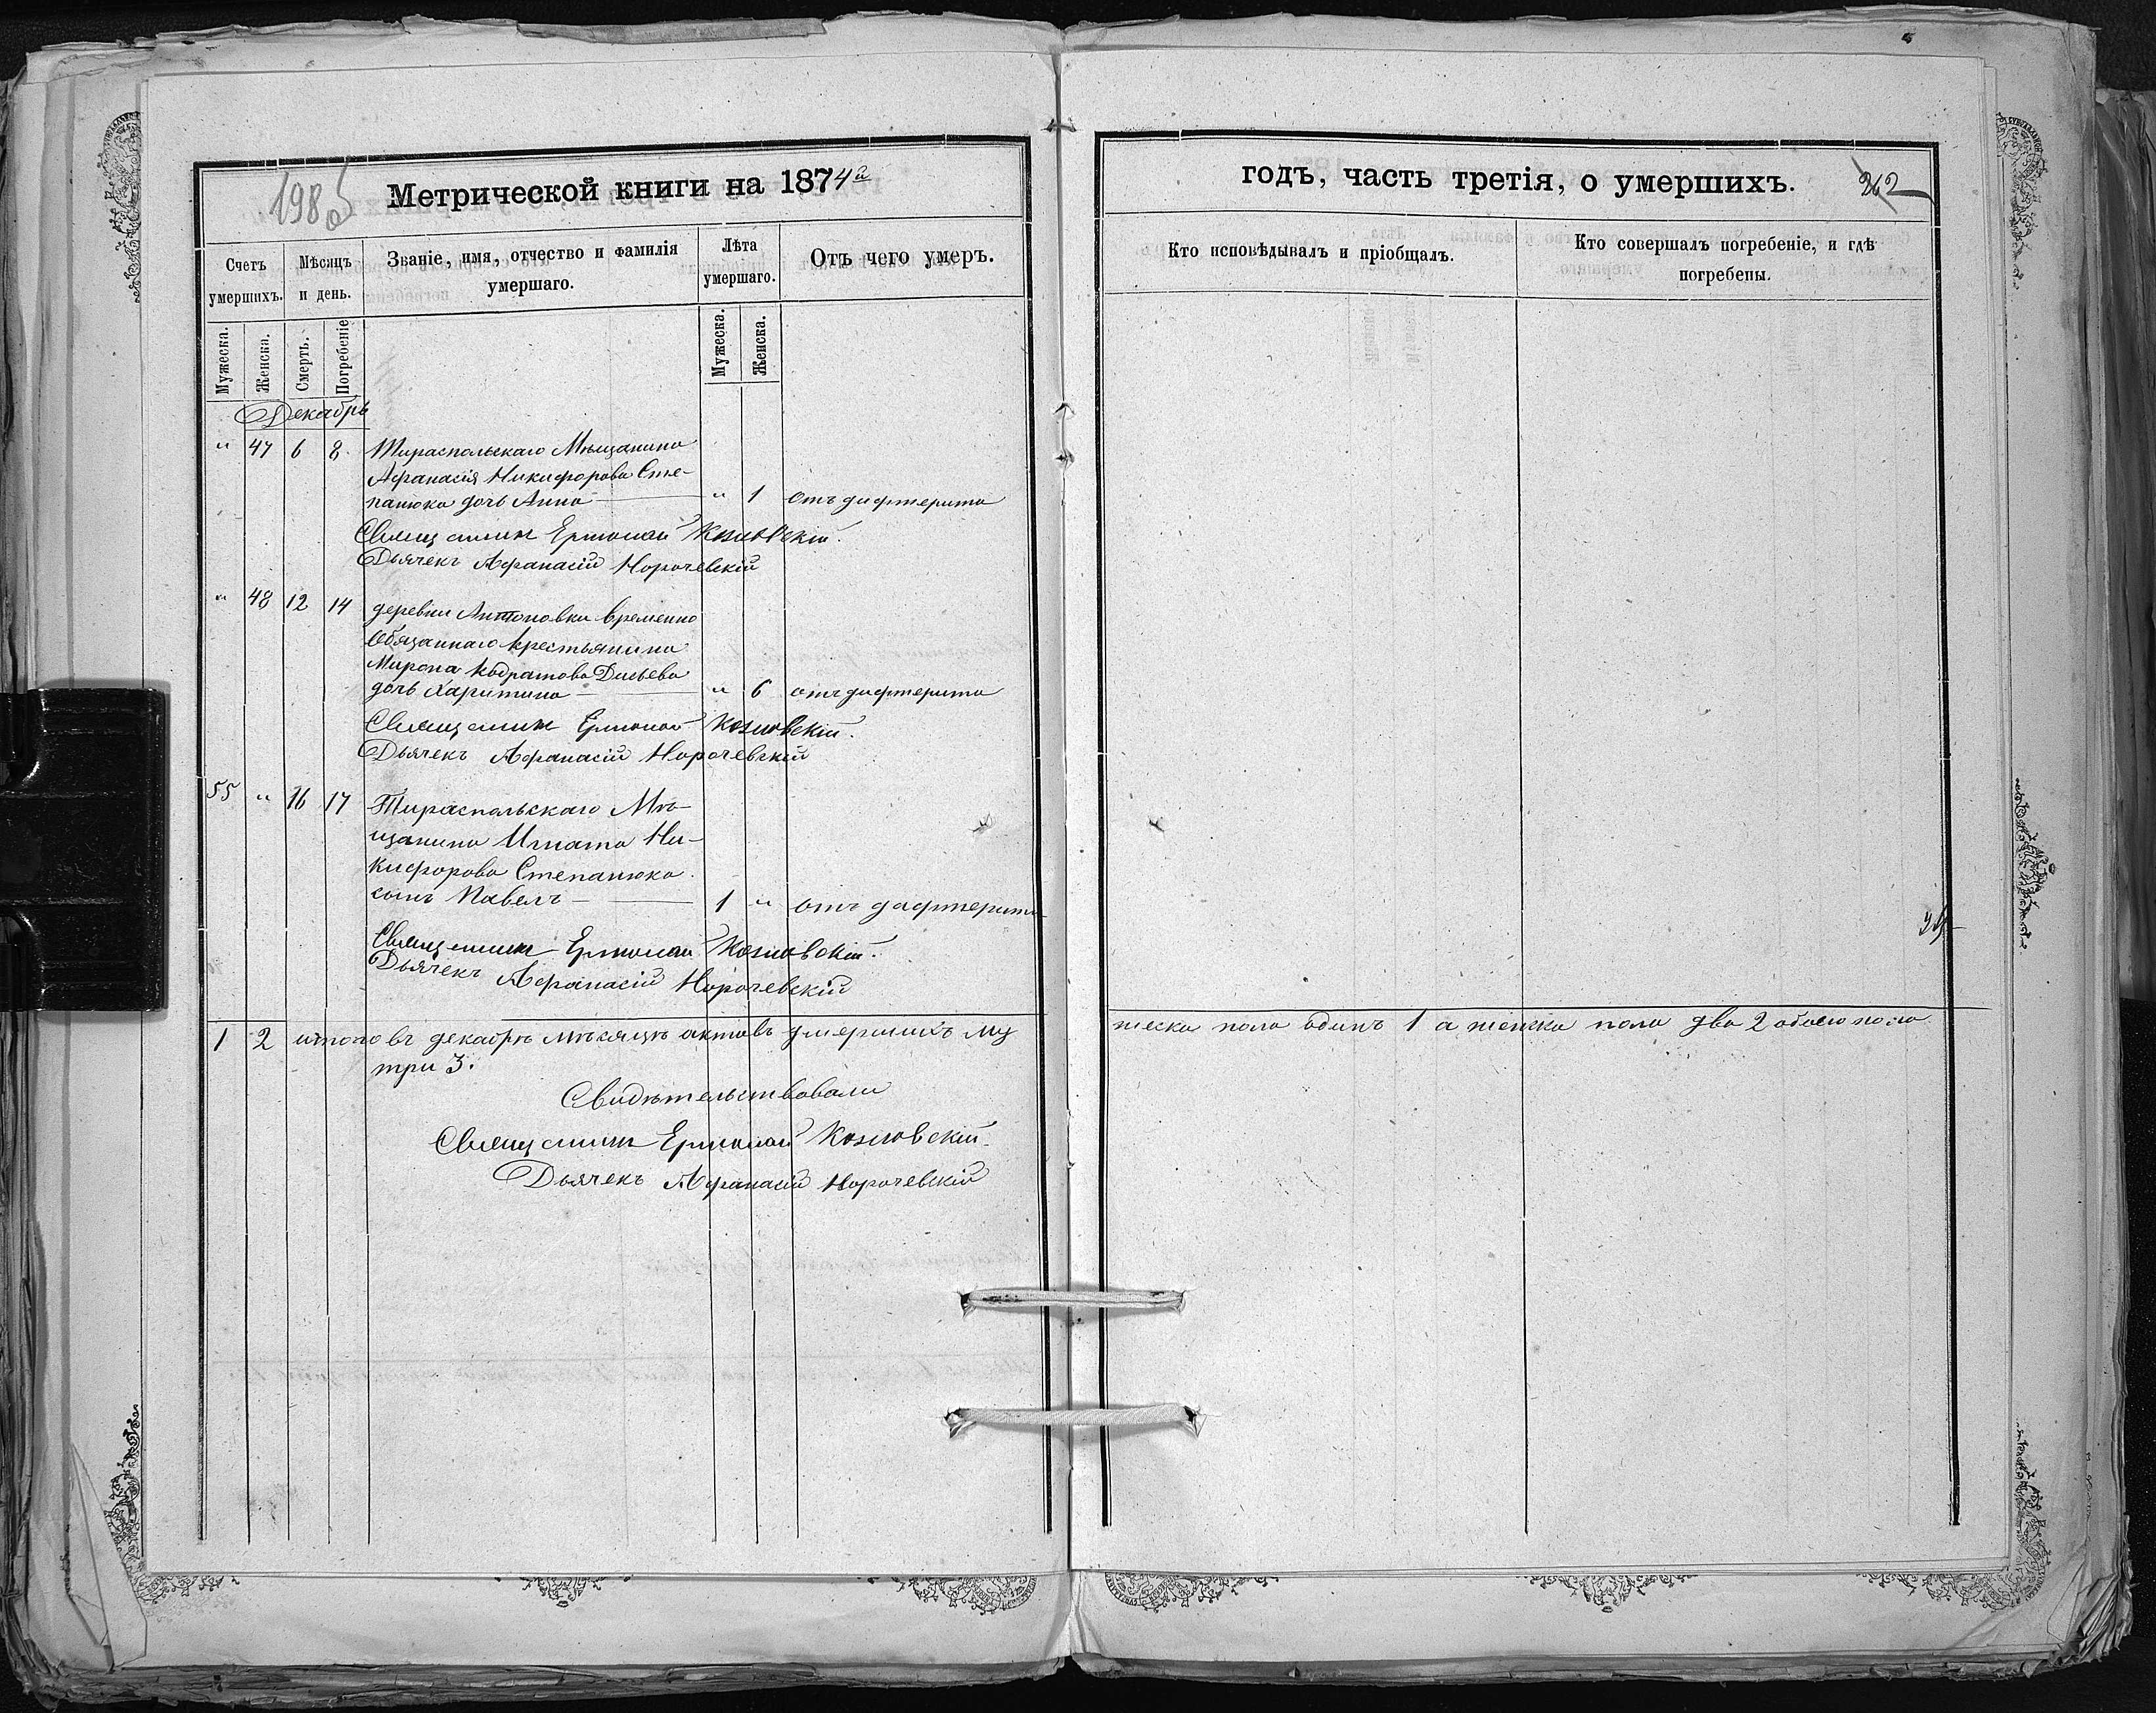 198 об
Метрической книги на 1874й
годъ, часть третія, о умершихъ.
262
Счетъ умершихъ.
Мѣсяцъ и день.
Званіе, имя, отчество и фамилія умершаго.
Лѣта умершаго.
Отъ чего умеръ.
Кто исповѣдывалъ и пріобщалъ.
Кто совершалъ погребеніе, и гдѣ погребены.
Мужеска.
Женска.
Смерть.
Погребеніе
Мужеска.
Женска.
Декабрь
" 47 6 8 Тираспольскаго Мѣщанина
Афанасія Никифорова Сте-
панюка дочь Анна — " 1 отъ дифтерита
Священник Ермолай Козловскій.
Дьячекъ Афанасій Норочевскій
" 48 12 14 деревни Антоновки временно
Обязаннаго крестьянина
Мирона Кодратова
дочь Харитина — " 6 отъ дифтерита
Священник Ермолай Козловскій.
Дьячекъ Афанасій Норочевскій
55 " 16 17 Тираспольскаго Мѣ-
щанина Игната Ни-
кифорова Степанюка
сынъ Павелъ — 1 " отъ дифтерита
Священник Ермолай Козловскій.
Дьячекъ Афанасій Норочевскій
1 2 итого въ декабрѣ мѣсяцѣ актовъ умершихъ му
жеска пола одинъ 1 а женска пола два 2 обоего пола
три 3.
Свидѣтельствовали
Священник Ермолай Козловскій.
Дьячекъ Афанасій Норочевскій